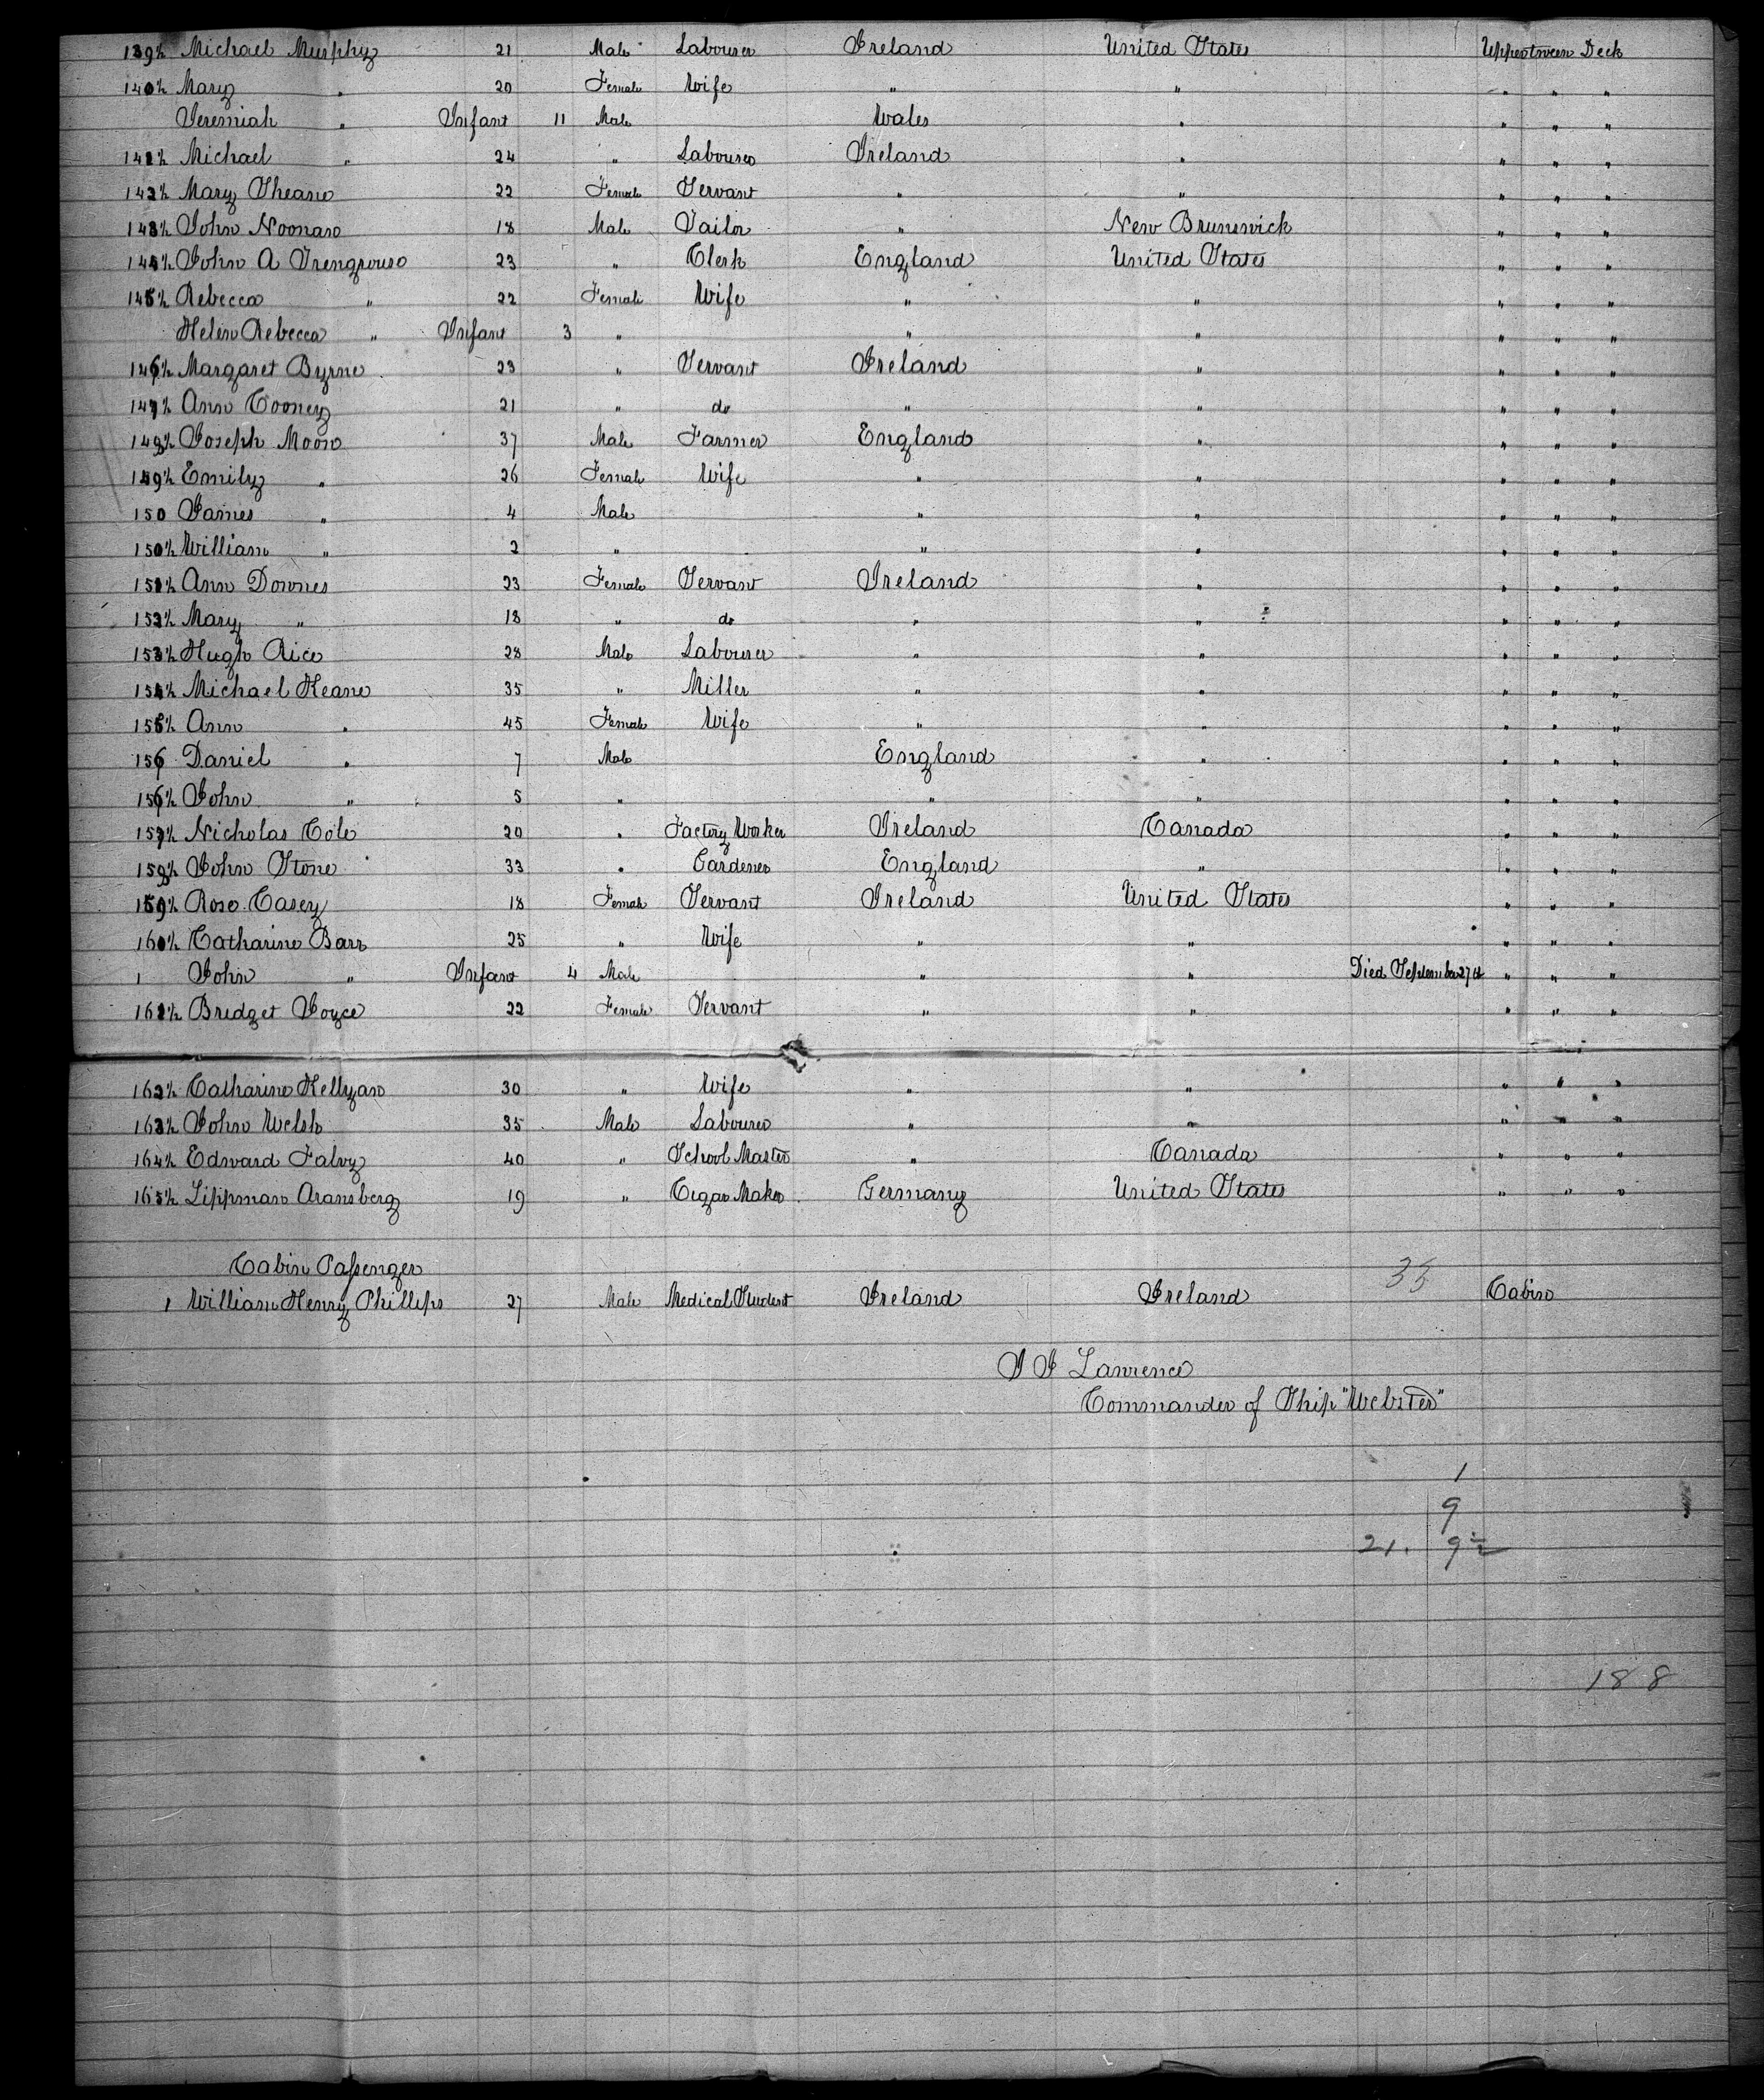 139½ Michael Murphy 21 Male Labourer Ireland United States Upper tween Deck
140½ Mary " 20 Female Wife " " " " "
Jeremiah " Infant 11 Male Wales " " " "
141½ Michael " 24 " Labourer Ireland " " " "
142½ Mary Sheane 22 Female Servant " " " " "
143½ John Noonan 18 Male Tailor " New Brunswick " " "
144½ John A Trengrouse 23 " Clerk England United States " " "
145½ Rebecca " 22 Female Wife " " " " "
Helen Rebecca " Infant 3 " " " " " "
146½ Margaret Byrne 23 " Servant Ireland " " " "
147½ Ann Cooney 21 " do " " " " "
148½ Joseph Moon 37 Male Farmer England " " " "
149½ Emily " 26 Female Wife " " " " "
150 James " 4 Male " " " " "
150½ William " 2 " " " " " "
151½ Ann Downes 23 Female Servant Ireland " " " "
152½ Mary " 18 " do " " " " "
153½ Hugh Rice 28 Male Labourer " " " " "
154½ Michael Keane 35 " Miller " " " " "
155½ Ann " 45 Female Wife " " " " "
156 Daniel " 7 Male England " " " "
156½ John " 5 " " " " " "
157½ Nicholas Cole 20 " Factory Worker Ireland Canada " " "
158½ John Stone 33 " Gardener England " " " "
159½ Rose Casey 18 Female Servant Ireland United States " " "
160½ Catharine Barr 25 " Wife " " " " "
1 John " Infant 4 Male " " Died September 27th " " "
161½ Bridget Joyce 22 Female Servant " " " " "
162½ Catharine Kellyan 30 " Wife " " " " "
163½ John Welsh 35 Male Labourer " " " " "
164½ Edward Falvy 40 " School Master " Canada " " "
165½ Lippman Aransberg 19 " Cigar Maker Germany United States " " "
Cabin Passenger 35
1 William Henry Phillips 27 Male Medical Student Ireland Ireland Cabin
J J Lawrence
Commander of Ship "Webster"
1
9
21. 9½
188